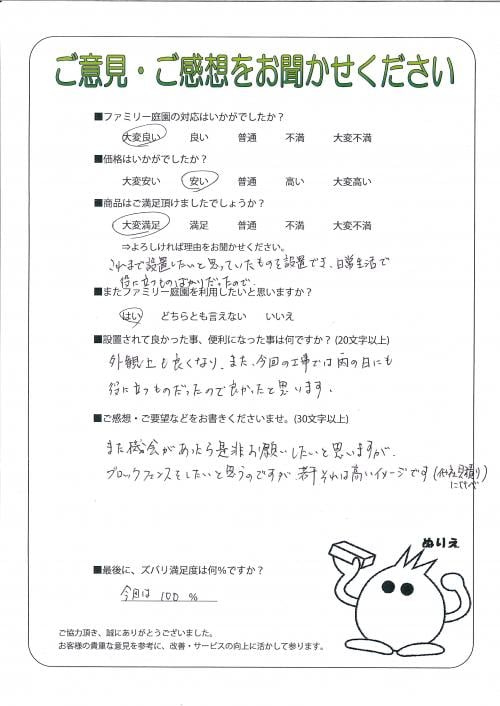 ご意見・ご感想をお聞かせください
■ファミリー庭園の対応はいかがでしたか?
大変良い 良い 普通 不満 大変不満
■価格はいかがでしたか?
大変安い 安い 普通 高い 大変高い
■商品はご満足頂けましたでしょうか?
大変満足 満足 普通 不満 大変不満
⇒よろしければ理由をお聞かせください。
これまで設置したいと思っていたものを設置でき、日常生活で
役に立つものばかりだったので。
■またファミリー庭園を利用したいと思いますか?
はい どちらとも言えない いいえ
■設置されて良かった事、便利になった事は何ですか? (20文字以上)
外観上も良くなり、また、今回の工事では雨の日にも
役に立つものだったので良かったと思います。
■ご感想・ご要望などをお書きくださいませ。(30文字以上)
また機会があったら是非お願いしたいと思いますが、
ブロックフェンスをしたいと思うのですが、若干それは高いイメージです(他社見積り
にくらべ
ぬりえ
■最後に、ズバリ満足度は何%ですか?
今回は 100 %
ご協力頂き、誠にありがとうございました。
お客様の貴重な意見を参考に、改善・サービスの向上に活かして参ります。